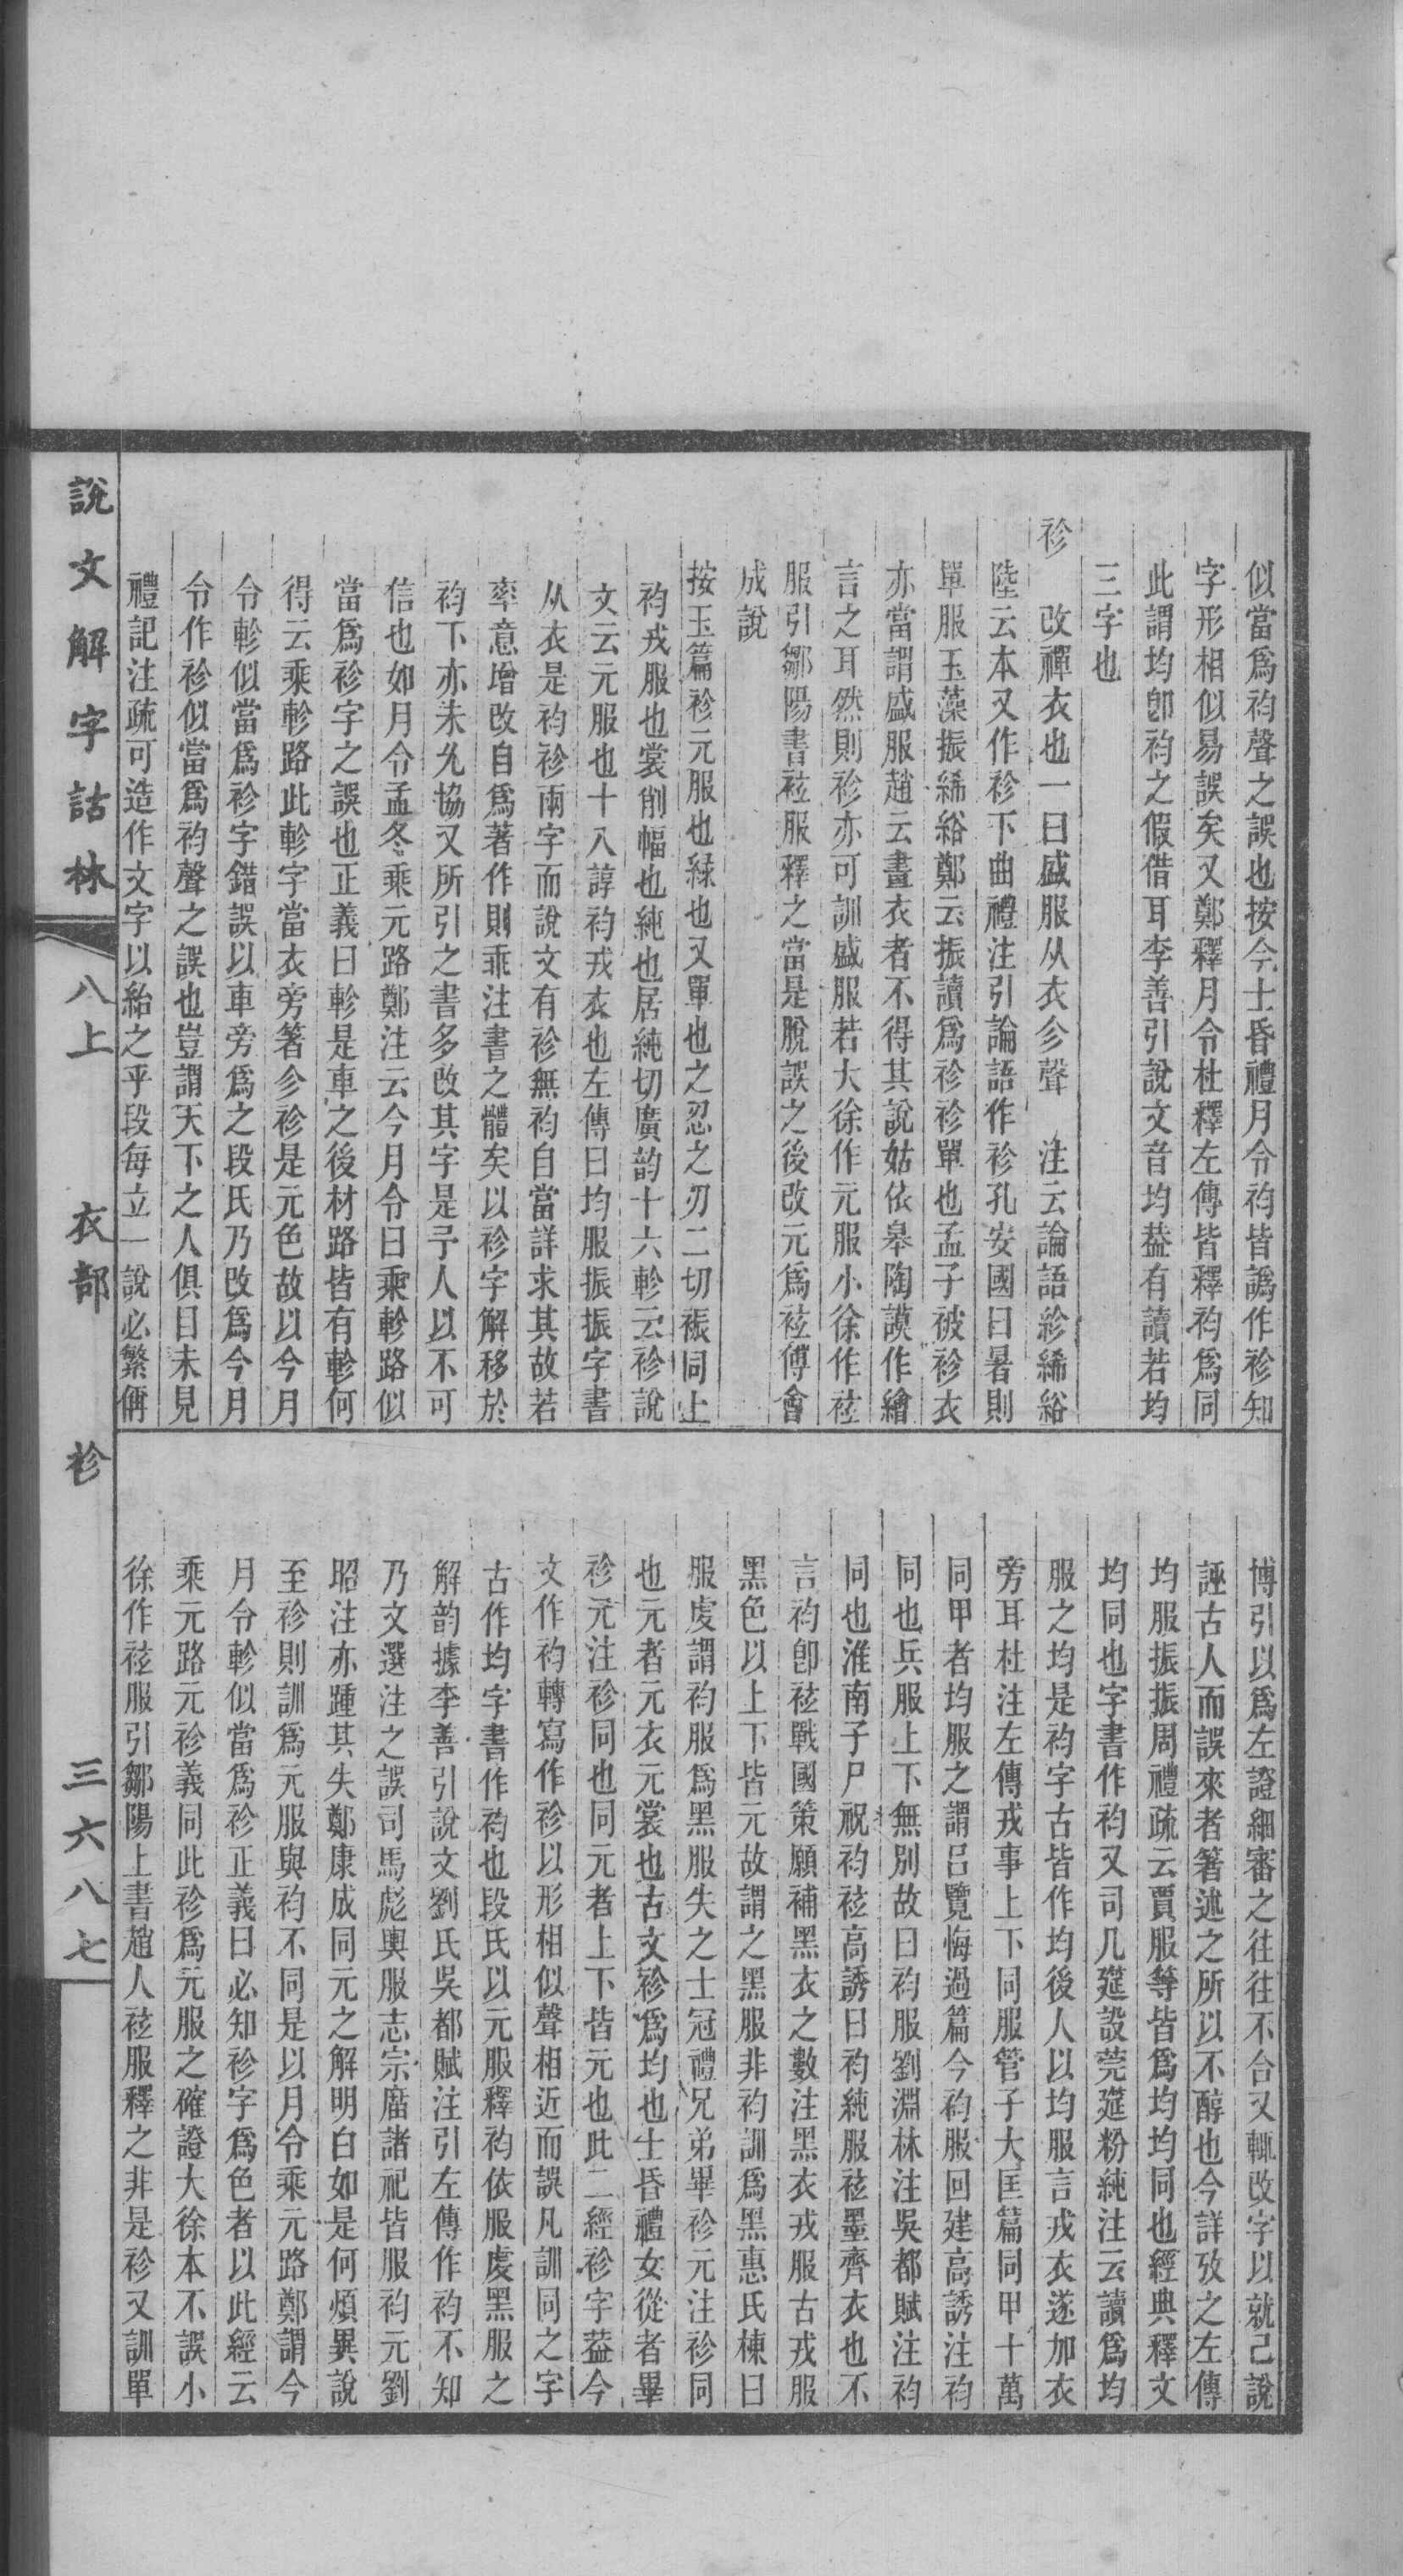 似當爲袀聲之誤也按今士昏禮月令袀皆譌作袗知
字形相似易誤矣又鄭釋月令杜釋左傳皆釋袀爲同
此謂均卽袀之假借耳李善引說文音均葢有讀若均
三字也
袗 改襌衣也一曰盛服从衣㐱聲 注云論語紾絺綌
陸云本又作袗下曲禮注引論語作袗孔安國曰暑則
單服玉藻振絺綌鄭云振讀爲袗袗單也孟子被袗衣
亦當謂盛服趙云畫衣者不得其說姑依皋陶謨作繪
言之耳然則袗亦可訓盛服若大徐作元服小徐作袨
服引鄒陽書袨服釋之當是脫誤之後改元爲袨傅會
成說
按玉篇袗元服也緑也又單也之忍之刃二切裖同上
袀戎服也裳削幅也純也居純切廣韵十六軫云袗說
文云元服也十八諄袀戎衣也左傳曰均服振振字書
从衣是袀袗兩字而說文有袗無袀自當詳求其故若
率意增改自爲著作則乖注書之體矣以袗字解移於
袀下亦未允協又所引之書多改其字是予人以不可
信也如月令孟冬乘元路鄭注云今月令曰乘軫路似
當爲袗字之誤也正義曰軫是車之後材路皆有軫何
得云乘軫路此軫字當衣旁著㐱袗是元色故以今月
令軫似當爲袗字錯誤以車旁爲之段氏乃改爲今月
令作袗似當爲袀聲之誤也豈謂天下之人俱目未見
禮記注疏可造作文字以紿之乎段每立一說必繁偁
博引以爲左證細審之往往不合又輒改字以就己說
誣古人而誤來者箸述之所以不醇也今詳攷之左傳
均服振振周禮疏云賈服等皆爲均均同也經典釋文
均同也字書作袀又司几筵設莞筵粉純注云讀爲均
服之均是袀字古皆作均後人以均服言戎衣遂加衣
旁耳杜注左傳戎事上下同服管子大匡篇同甲十萬
同甲者均服之謂呂覽悔過篇今袀服回建高誘注袀
同也兵服上下無別故曰袀服劉淵林注吳都賦注袀
同也淮南子尸祝袀袨高誘曰袀純服袨墨齊衣也不
言袀卽袨戰國策願補黑衣之數注黑衣戎服古戎服
黑色以上下皆元故謂之黑服非袀訓爲黑惠氏棟曰
服虔謂袀服爲黑服失之士冠禮兄弟畢袗元注袗同
也元者元衣元裳也古文袗爲均也士昏禮女從者畢
袗元注袗同也同元者上下皆元也此二經袗字葢今
文作袀轉寫作袗以形相似聲相近而誤凡訓同之字
古作均字書作袀也段氏以元服釋袀依服虔黑服之
解韵據李善引說文劉氏吳都賦注引左傳作袀不知
乃文選注之誤司馬彪輿服志宗廟諸祀皆服袀元劉
昭注亦踵其失鄭康成同元之解明白如是何煩異說
至袗則訓爲元服與袀不同是以月令乘元路鄭謂今
月令軫似當爲袗正義曰必知袗字爲色者以此經云
乘元路元袗義同此袗爲元服之確證大徐本不誤小
徐作袨服引鄒陽上書趙人袨服釋之非是袗又訓單
說文解字詁林 八上 衣部 袗 三六八七